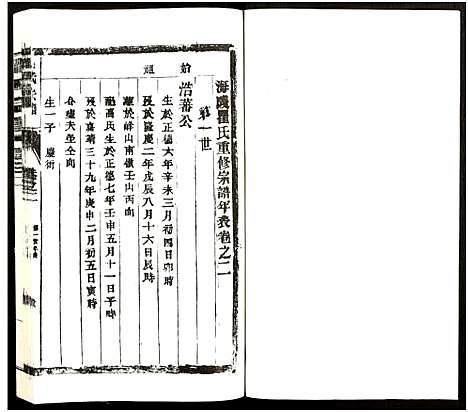 海陵瞿氏重修宗譜年表卷之二
第一世
始祖
浩蕃公
生於正德六年辛未三月初四日卯時
歿於隆慶二年戊辰八月十六日辰時
葬於峰山南嶺壬山丙向
配高氏生於正德七年壬申五月十一日子時
歿於嘉靖三十九年庚申二月初五日亥時
合塟夫塋仝向
生一子
卷之二
第一世年表